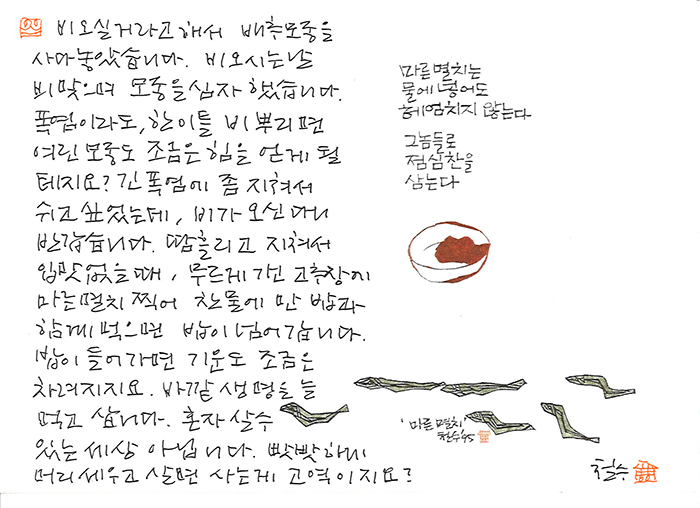 비오실거라고 해서 배추모종을
사다놓았습니다. 비오시는날
비맞으며 모종을 심자 했습니다.
폭염이라도, 한이틀 비 뿌리면
여린 모종도 조금은 힘을 얻게 될
테지요? 긴 폭염에 좀 지쳐서
쉬고 싶었는데, 비가 오신다니
반갑습니다. 땀흘리고 지쳐서
입맛없을때, 무르게 갠 고추장에
마른멸치 찍어 찬물에 만 밥과
함께 먹으면 밥이 넘어갑니다.
밥이 들어가면 기운도 조금은
차려지지요. 바깥 생명을 늘
먹고 삽니다. 혼자 살수
있는 세상 아닙니다. 빳빳하게
머리세우고 살면 사는게 고역이지요?
마른멸치는
물에 넣어도
헤엄치지 않는다
그놈들로
점심찬을
삼는다
마른멸치
철수 '95
철수